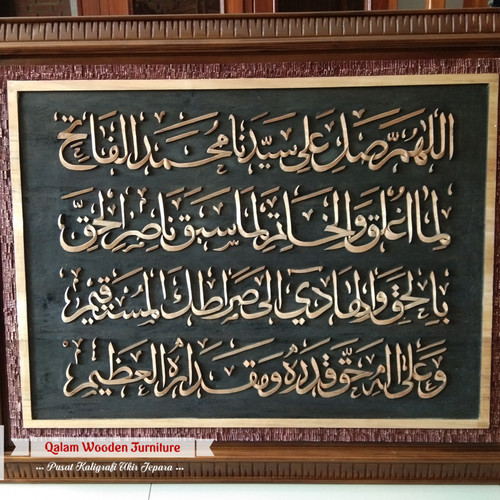 اللهم صل على سيدنا محمد الفاتح
لما اغلق والخاتم لما سبق ناصر الحق
بالحق والهادي الى صراطك المستقيم
وعلى اله حق قدره ومقداره العظيم
Qalam Wooden Furniture
... Pusat Kaligrafi Ukir Jepara ...